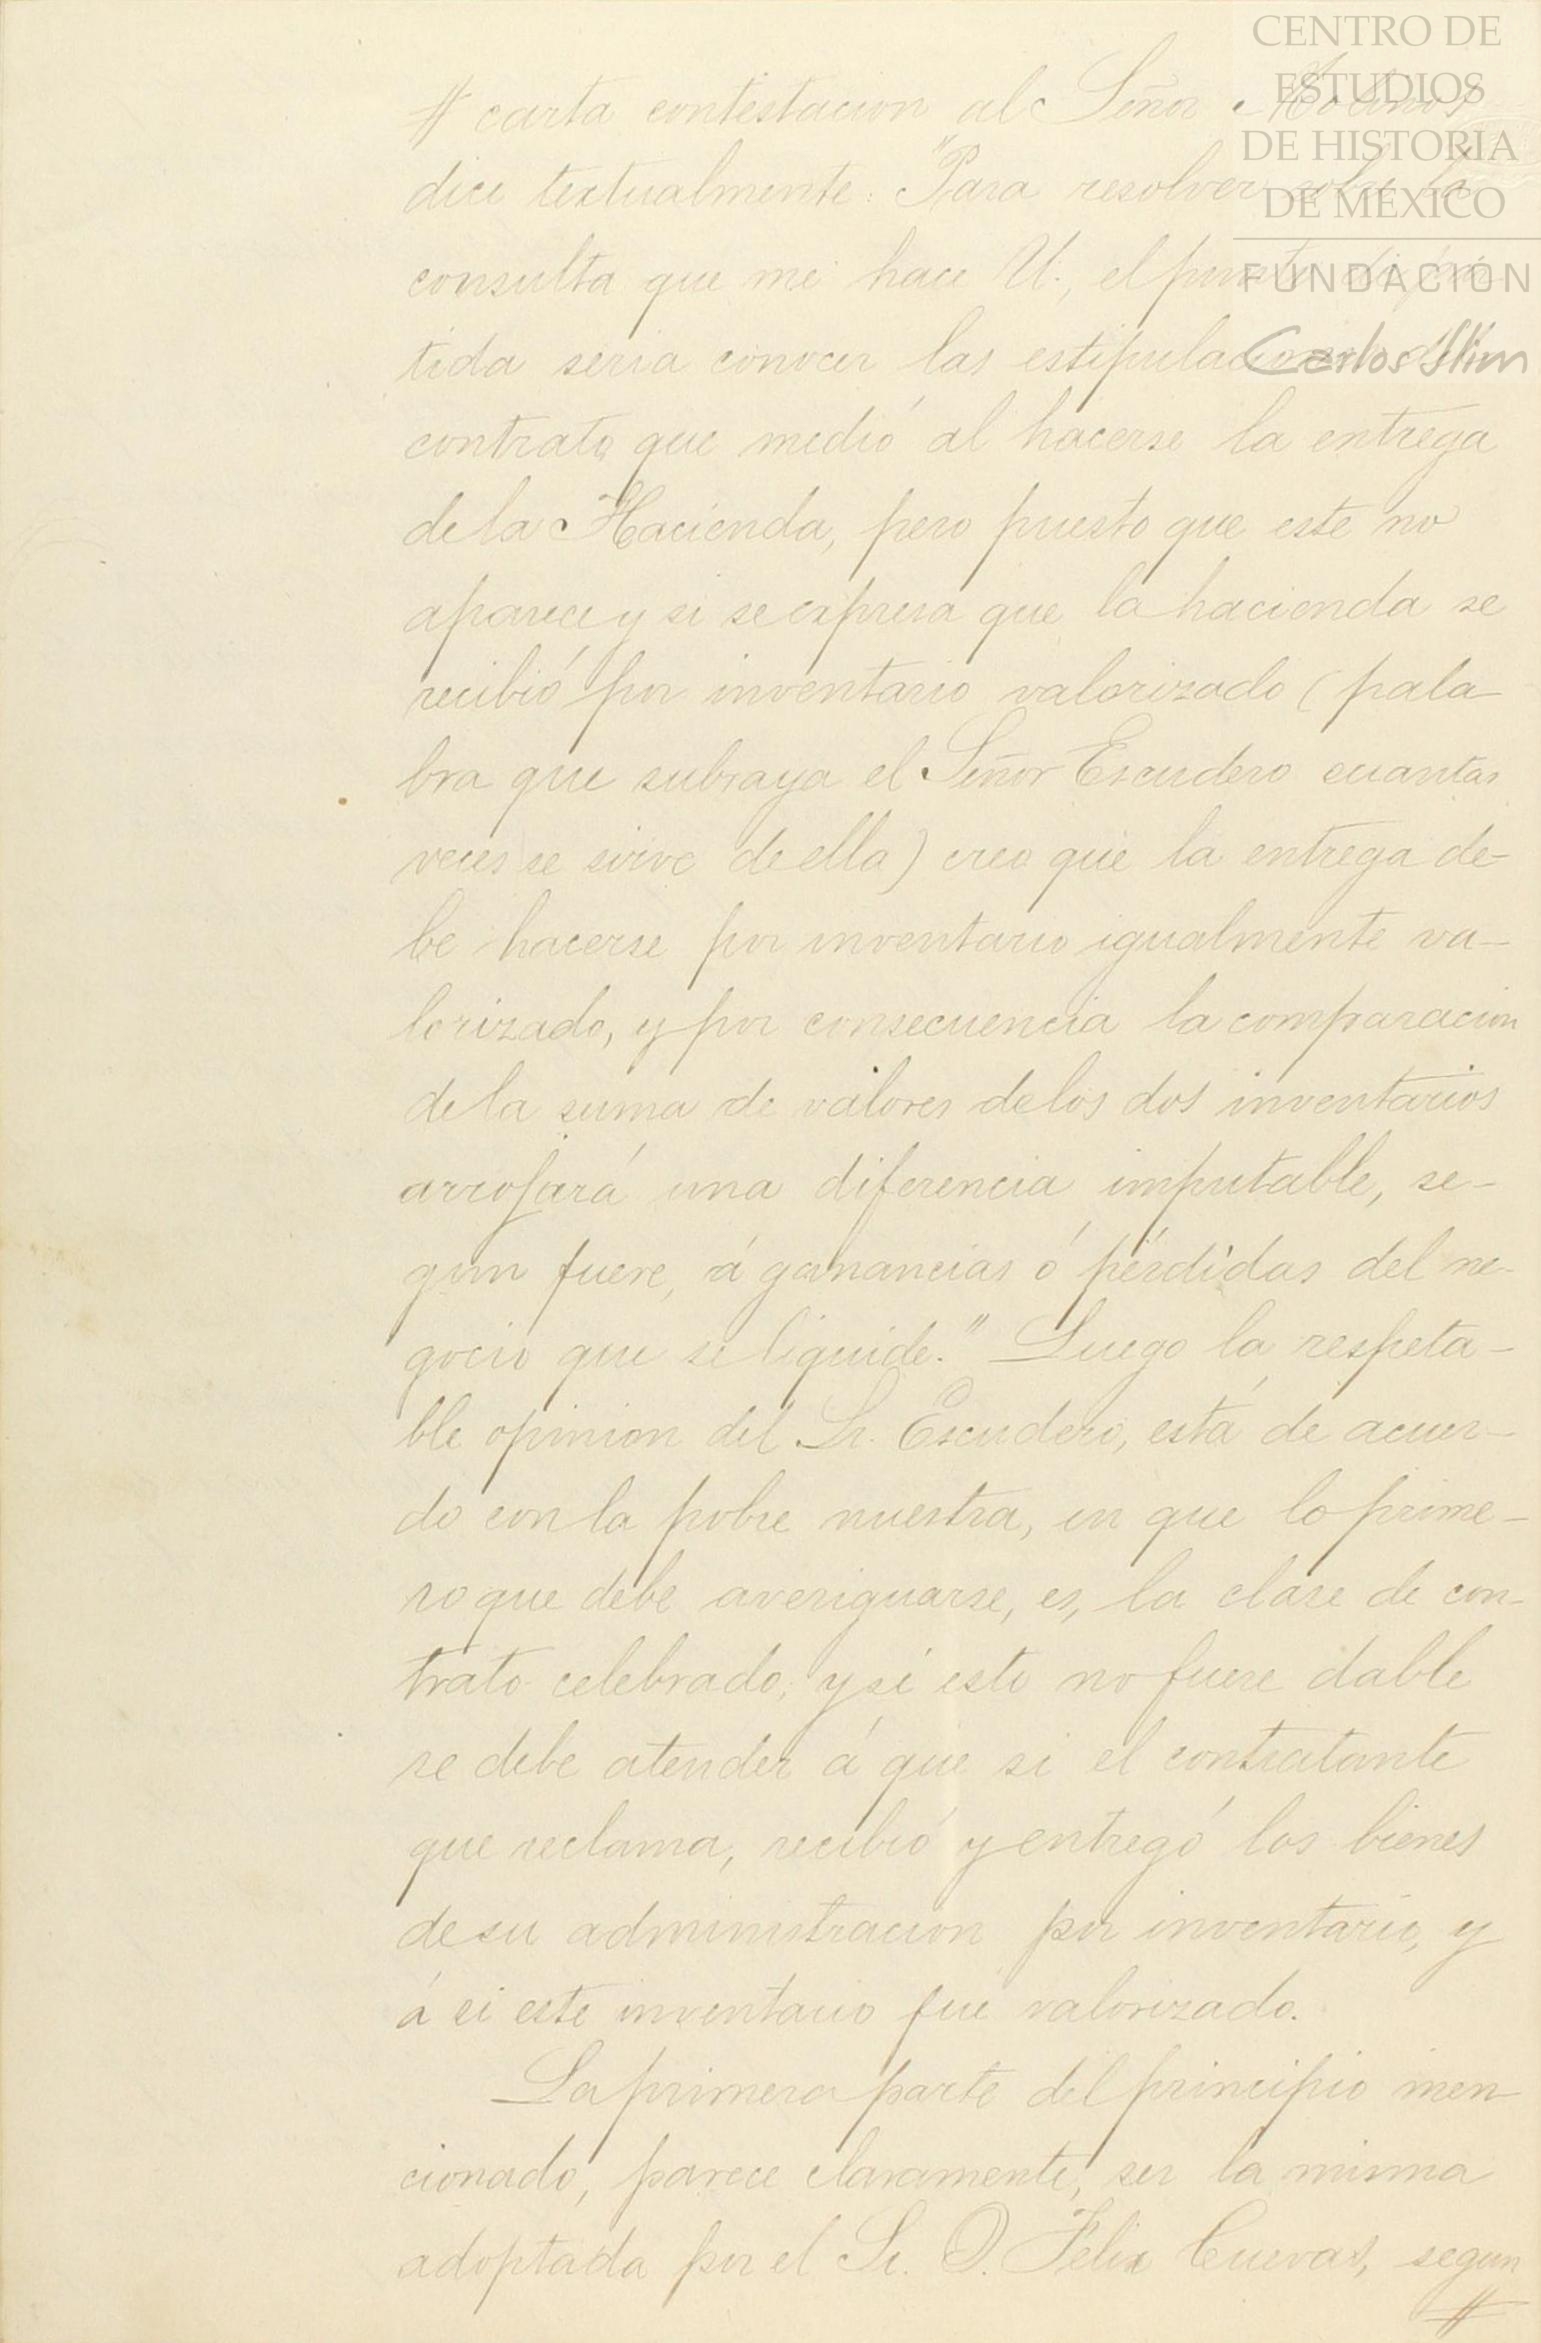 CENTRO DE
ESTUDIOS
DE HISTORIA
DE MÉXICO
FUNDACIÓN
Carlos Slim
# carta contestacion al Señor Molinos
dice textualmente: "Para resolver sobre la
consulta que me hace U., el punto de par-
tida seria conocer las estipulaciones del
contrato que medió al hacerse la entrega
de la Hacienda, pero puesto que este no
aparece y si se expresa que la hacienda se
recibió por inventario valorizado (pala-
bra que subraya el Señor Escudero cuantas
veces se sirve de ella) creo que la entrega de-
be hacerse por inventario igualmente va-
lorizado, y por consecuencia la comparacion
de la suma de valores de los dos inventarios
arrojará una diferencia imputable, se-
gun fuere, á ganancias ó pérdidas del ne-
gocio que se liquide." Luego la respeta-
ble opinion del Sr. Escudero, está de acuer-
do con la pobre nuestra, en que lo prime-
ro que debe averiguarse, es, la clase de con-
trato celebrado, y si esto no fuere dable
se debe atender á que si el contratante
que reclama, recibió y entregó los bienes
de su administracion por inventario, y
á si este inventario fué valorizado.
La primera parte del principio men-
cionado, parece claramente, ser la misma
adoptada por el Sr. D. Felix Cuevas, segun
#